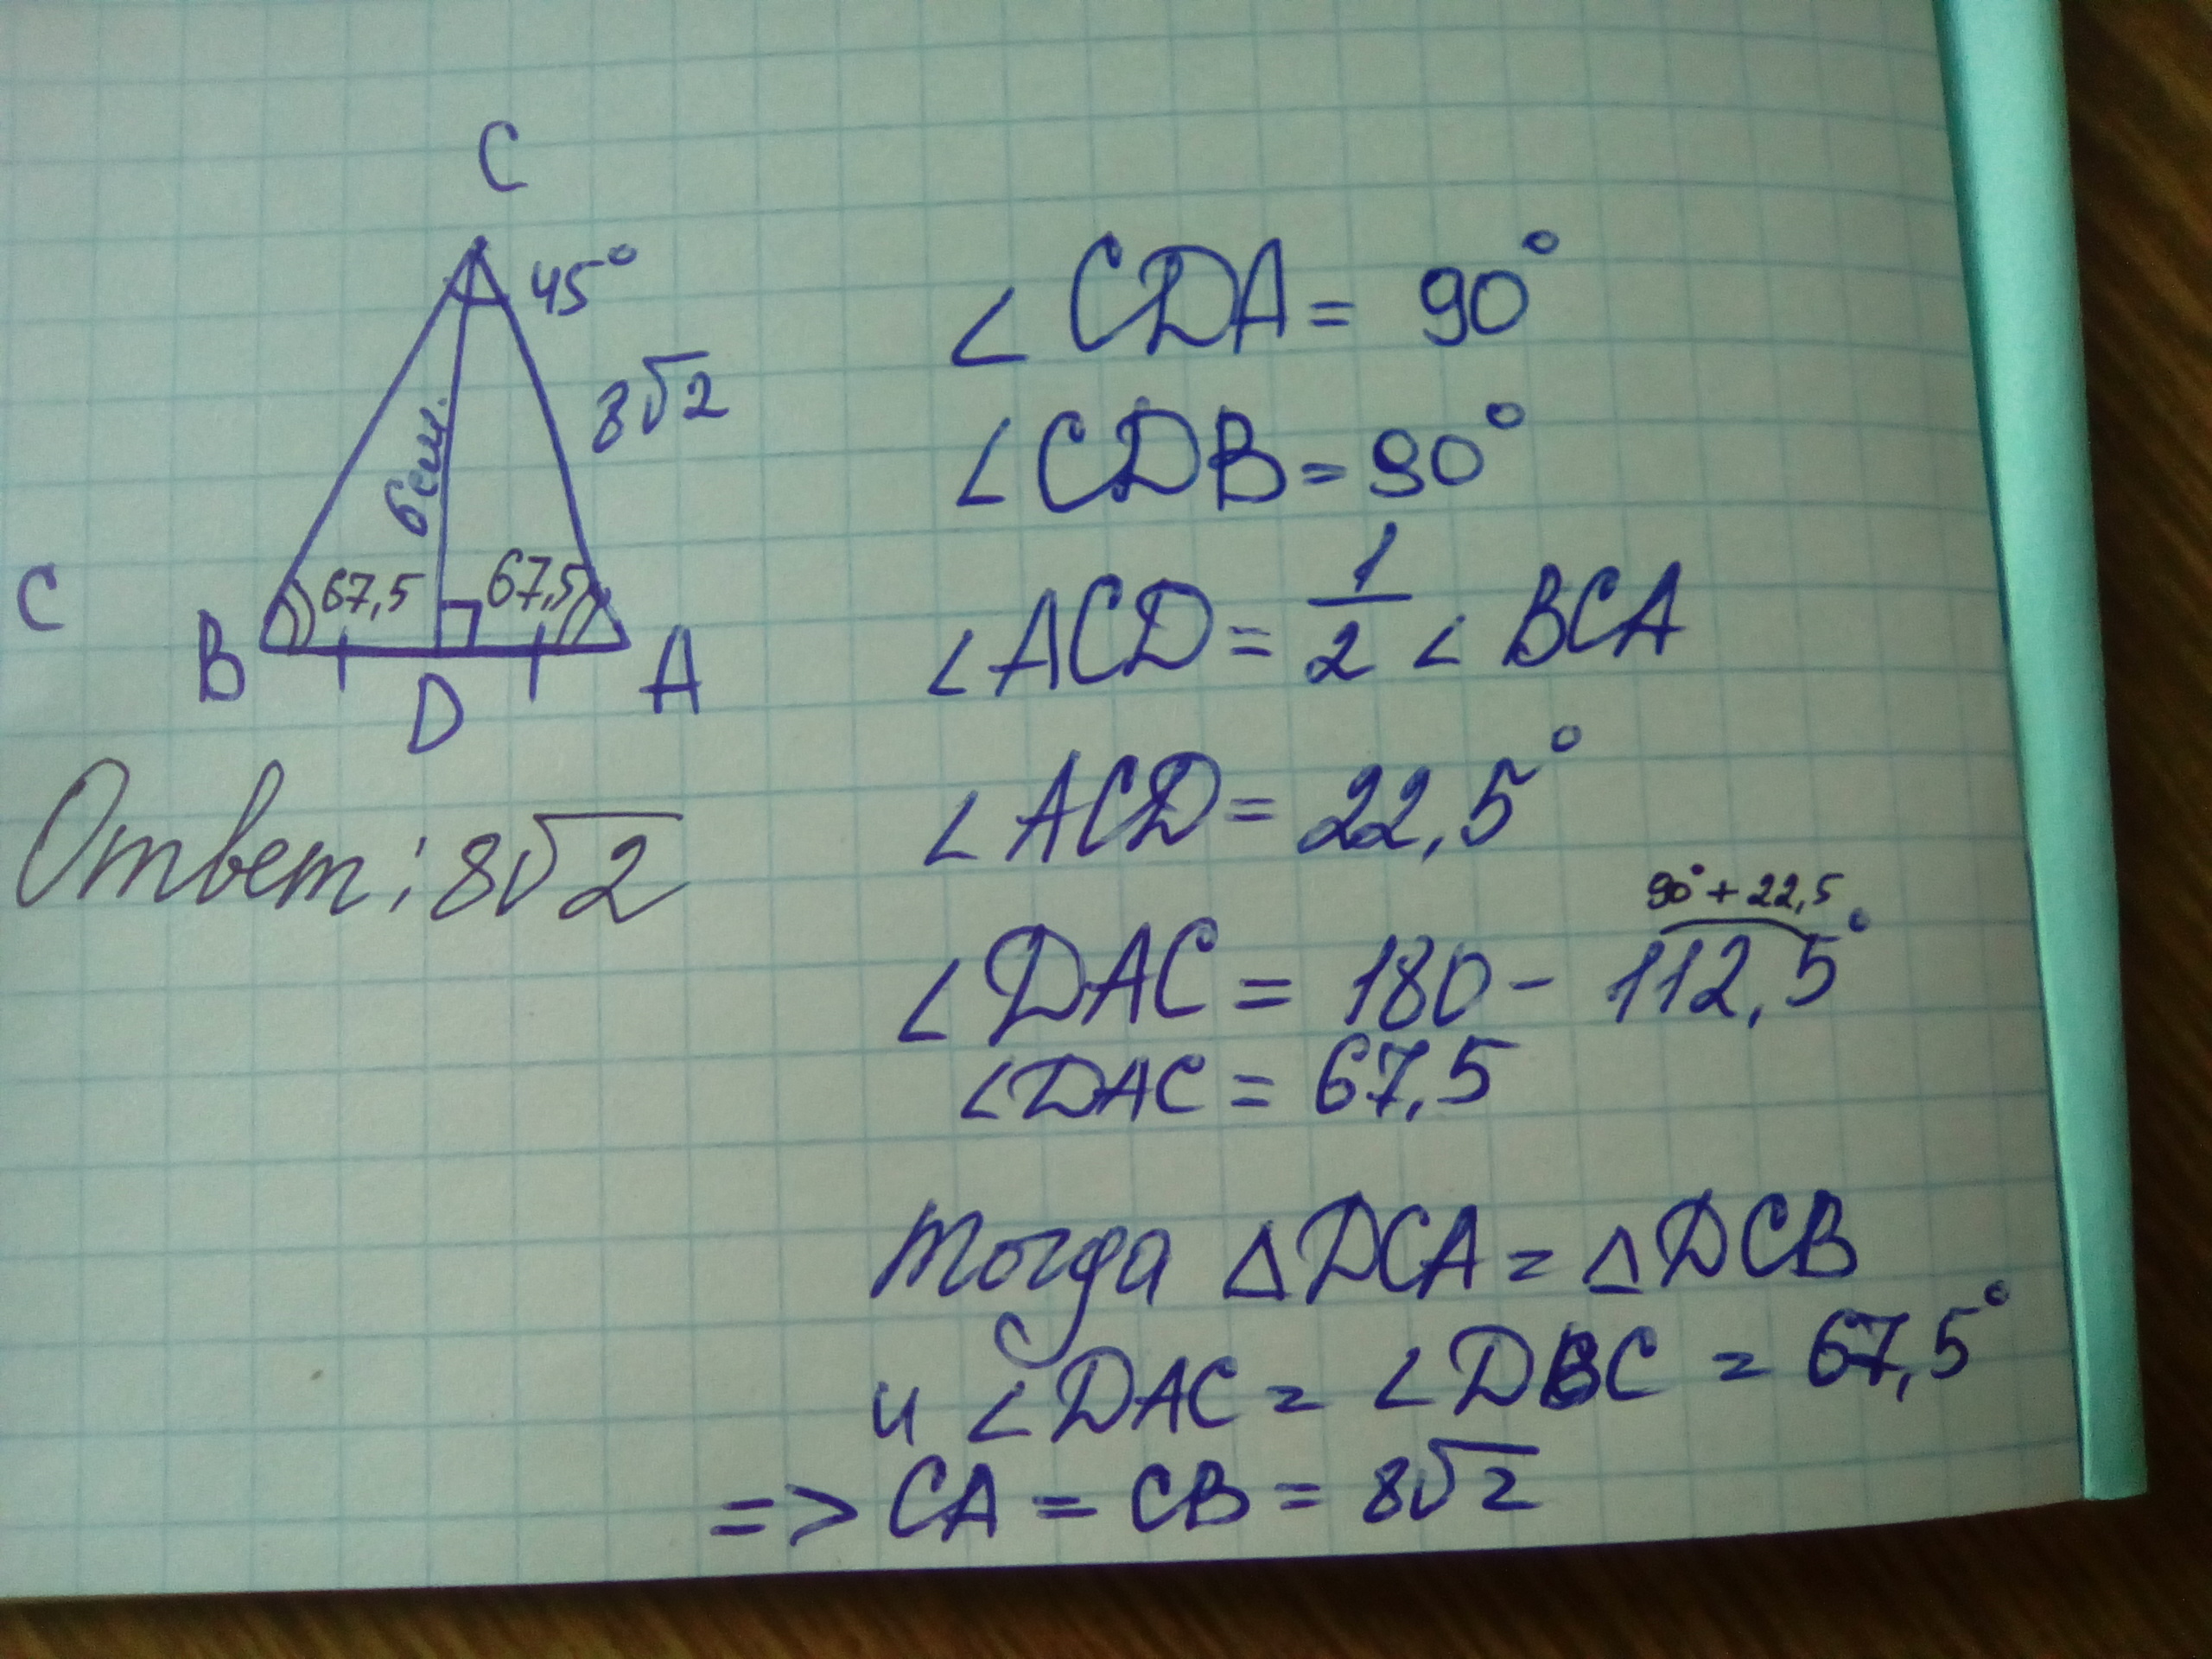 C
45°
8√2
6см.
67,5
67,5
C
B
D
A
Ответ: 8√2
∠CDA = 90°
∠CDB = 90°
∠ACD = 1/2 ∠ BCA
∠ACD = 22,5°
90° + 22,5
∠DAC = 180 - 112,5°
∠DAC = 67,5
Тогда ΔDCA = ΔDCB
и ∠DAC = ∠DBC = 67,5°
=> CA = CB = 8√2